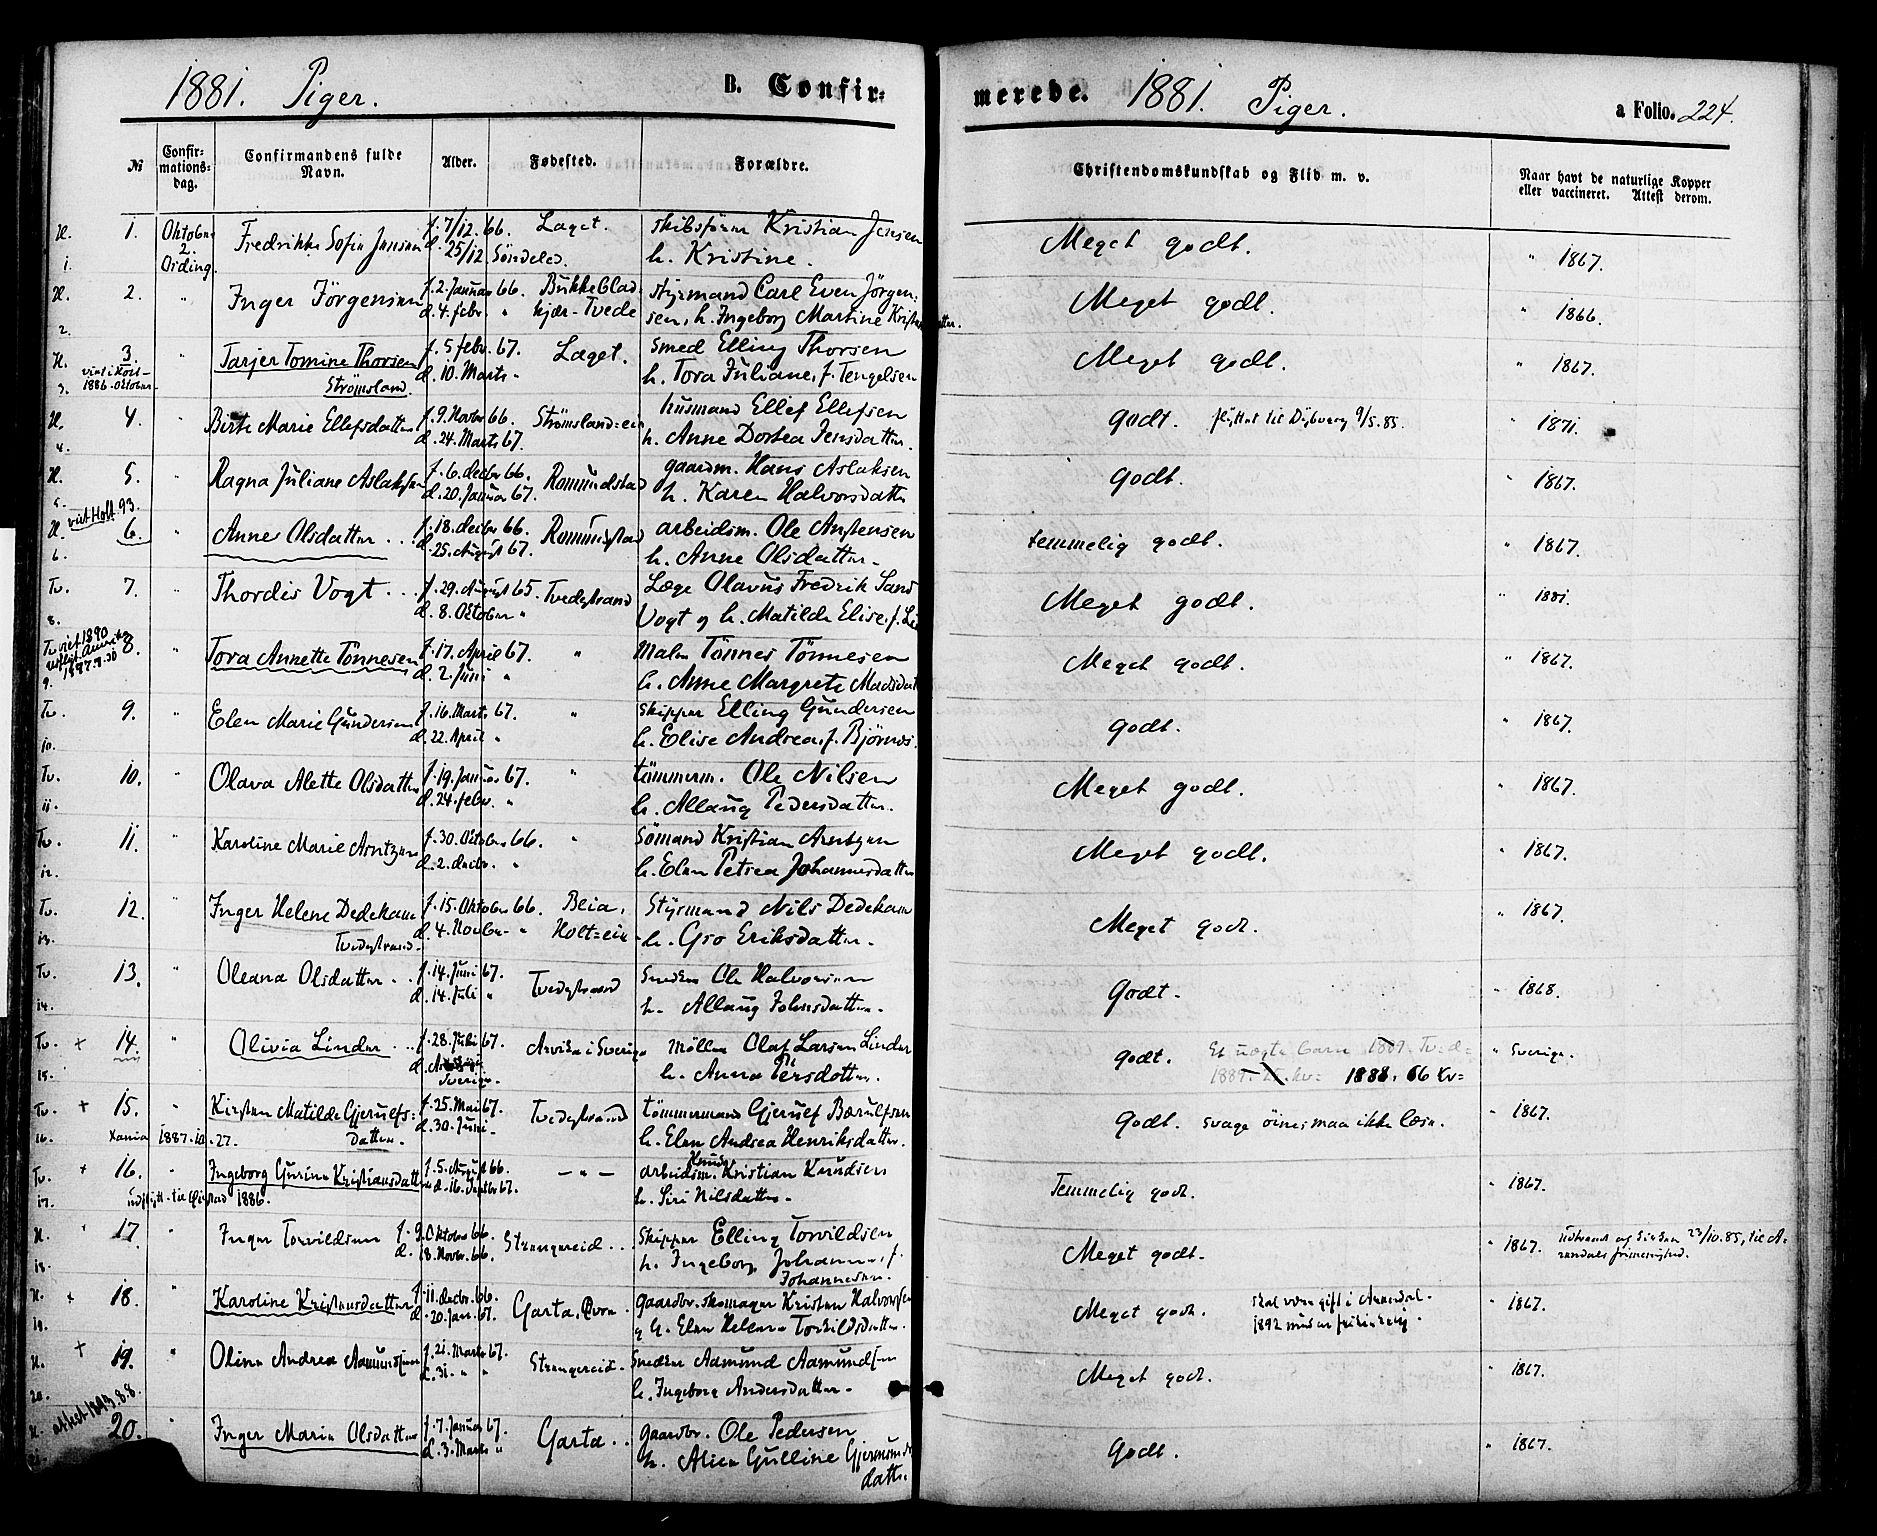 1881. Piger.
B. Confir-
merede. 1881. Piger. a Folio. 224.
№ Confir-mations-dag. Confirmandens fulde Navn. Alder. Fødested. Forældre.
Christendomskundskab og Flid m. v. Naar havt de naturlige Kopper eller vaccineret. Attest derom.
H. 1. Oktober Fredrikke Sofie Jensen f. 7/12. 66. Laget. skibsfører Kristian Jensen Meget godt. " 1867.
1. 2. d. 25/12 Söndeled. h. Kristine.
H. 2. " Inger Jörgensen f. 2. Januar 66. Bukkeblad- styrmand Carl Even Jörgen- Meget godt. " 1866.
2. d. 4. febr. " kjær - Tvede sen, h. Ingeborg Martine
H. 3. " Tarjer Tomine Thorsen f. 5 febr. 67. Laget. Smed Elling Thorsen Meget godt. " 1867.
3. 1886. Oktober Strömsland. d. 10. Marts " h. Tora Juliane, f. Tengelsen
H. 4. " Birte Marie Ellefsdatter f. 9. Novbr 66. Strömsland=eie husmand Ellef Ellefsen godt. flyttet til Dybvaag 9/5. 85. " 1871.
4. d. 24. Marts 67. h. Anne Dortea Jensdatter.
H. 5. " Ragna Juliane Aslaksen f. 6. decbr 66. Romundstad gaardm. Hans Aslaksen godt. " 1867.
5. d. 20. Januar 67. h. Karen Halvorsdatter
viet Holt 93.
H. 6. " Anne Olsdatter f. 18. decbr 66. Romundstad arbeidsm. Ole Anstensen temmelig godt. " 1867.
6. d. 25. August 67. h. Anne Olsdatter.
Tv. 7. " Thordis Vogt f. 29. August 65. Tvedestrand Læge Olavus Fredrik Sand Meget godt. " 1881.
8. d. 8. Oktober " Vogt og h. Matilde Elise, f.
Tv. viet 1890 8. " Tora Annette Tönnesen f. 17. April 67. " Maler Tönnes Tönnesen Meget godt. " 1867.
9. d. 2. Juni " h. Anne Margrete
Tv. 9. " Elen Marie Gundersen f. 16. Marts 67. " Skipper Elling Gundersen godt. " 1867.
10. d. 22. April " h. Elise Andrea, f. Björnes.
Tv. 10. " Olava Alette Olsdatter f. 19. Januar 67. " tömmerm. Ole Nilsen Meget godt. " 1867.
11. d. 24. febr. " h. Allaug Pedersdatter.
Tv. 11. " Karoline Marie Arntzen f. 30. Oktober 66. " Sömand Kristian Arntzen Meget godt. " 1867.
12. d. 2. decbr. " h. Elen Petrea Johannesdatter
Tv. 12. " Inger Helene Dedekam f. 15. Oktober 66. Beia, Styrmand Nils Dedekam Meget godt. " 1867.
13. Tvedestrand. d. 4. Novbr. " Holt=eie h. Gro Eriksdatter.
Tv. 13. " Oleana Olsdatter f. 14. Juni 67. Tvedestrand Snedker Ole Halvorsen Godt. " 1868.
14. d. 14. Juli " h. Allaug Johnsdatter.
Tv. + 14. " Olivia Linder f. 28. Juli 67. Arvika i Sverige Möller Olaf Larsen Linder godt. Et uægte barn " Sverige.
15. d. Sverige. h. Anna Persdotter. 1888. 66 Kv=
Tv. + 15. " Kirsten Matilde Gjerulfs- f. 25. Mai 67. Tvedestrand tömmermand Gjerulf Bærulfsen Godt. svage öine, maa ikke læse. " 1867.
16. Xania 1887. 10. 27. datter. d. 30. Juni " h. Elen Andrea Henriksdatter.
Tv. + 16. " Ingeborg Gurine Kristiansdatter f. 5. August 66. — " — arbeidsm. Kristian Knudsen Temmelig godt. " 1867.
17. Udflytt. til Øiestad 1886. d. 16. Septbr 67. h. Siri Nilsdatter.
H. 17. " Inger Torvildsen f. 9. Oktober 66. Strengereid Skipper Elling Torvildsen Meget godt. " 1867. Udtraadt af Kirken 23/10. 85, til A-rendals frimenighed.
18. d. 18. Novbr. 66. h. Ingeborg Johanne, f. Johannesen.
H. + 18. " Karoline Kristensdatter f. 11. decbr. 66. Garta, Övre gaardbr. skomager Kristen Halvorsen Meget godt. skal være gift i Arendal 1892 " 1867.
19. d. 20. Jan. 67. og h. Elen Helene Torkildsdatter.
H. + 19. " Oline Andrea Aamundsen f. 21. Marts 67. Strengereid Snedker Aamund Aamundsen Meget godt. " 1867.
20. d. 31. " " h. Ingeborg Andersdatter.
attest 1893. 8. 8.
H. 20. " Inger Marie Olsdatter f. 7. Januar 67. Garta gaardbr. Ole Pedersen Godt. " 1867.
d. 3. Marts " h. Alice Gulline Gjermunds-datter.